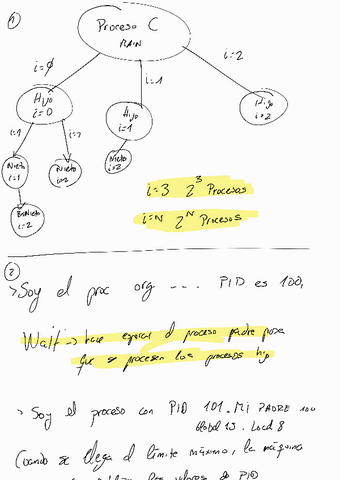 1
Proceso C
MAIN
i=0
i=1
i=2
Hijo
i=0
Hijo
i=1
Hijo
i=2
i=1
i=2
Nieto
i=1
Nieto
i=2
Nieto
i=2
Bisnieto
i=2
i=3 2^3 Procesos
i=N 2^N Procesos
2
>Soy el proc org ... PID es 100,
Wait -> hace esperar el proceso padre para
que se procesen los procesos hijo
> Soy el proceso con PID 101. Mi PADRE 100
Global 13. Local 8
Cuando se llega al límite máximo, la máquina
los valores de PID